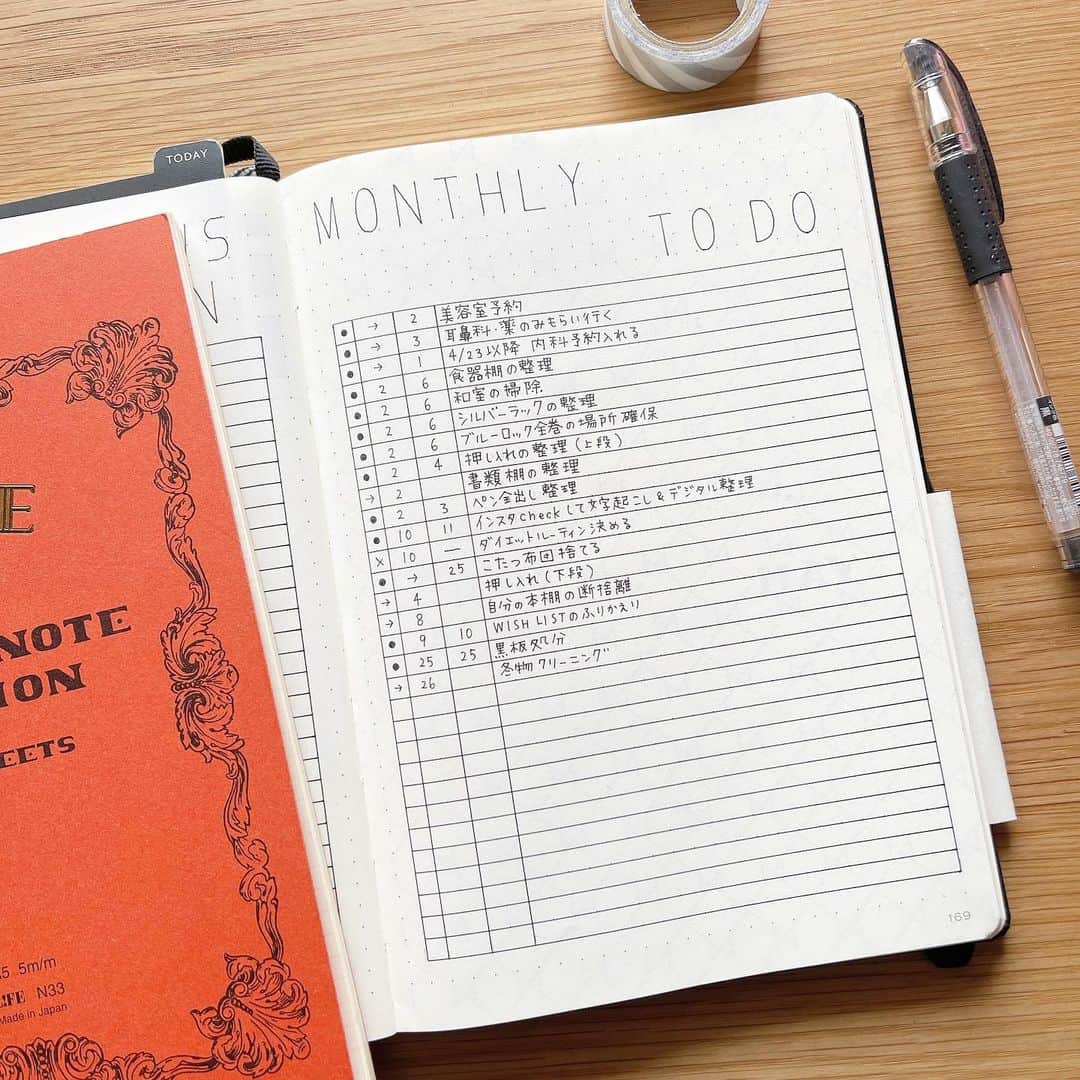 TODAY
MONTHLY
TO DO
● → 2 美容室予約
● → 3 耳鼻科・薬のみもらい行く
● → 1 4/23以降 内科予約入れる
● 2 6 食器棚の整理
● 2 6 和室の掃除
● 2 6 シルバーラックの整理
● 2 6 ブルーロック全巻の場所確保
● 2 4 押し入れの整理(上段)
→ 2 書類棚の整理
● 2 3 ペン全出し整理
● 10 11 インスタcheckして文字起こし&デジタル整理
× 10 — ダイエットルーティン決める
● → 25 こたつ布団捨てる
→ 4 押し入れ(下段)
→ 8 自分の本棚の断捨離
● 9 10 WISH LISTのふりかえり
● 25 25 黒板処分
→ 26 冬物クリーニング
169
NOTE
5m/m
N33
Made in Japan